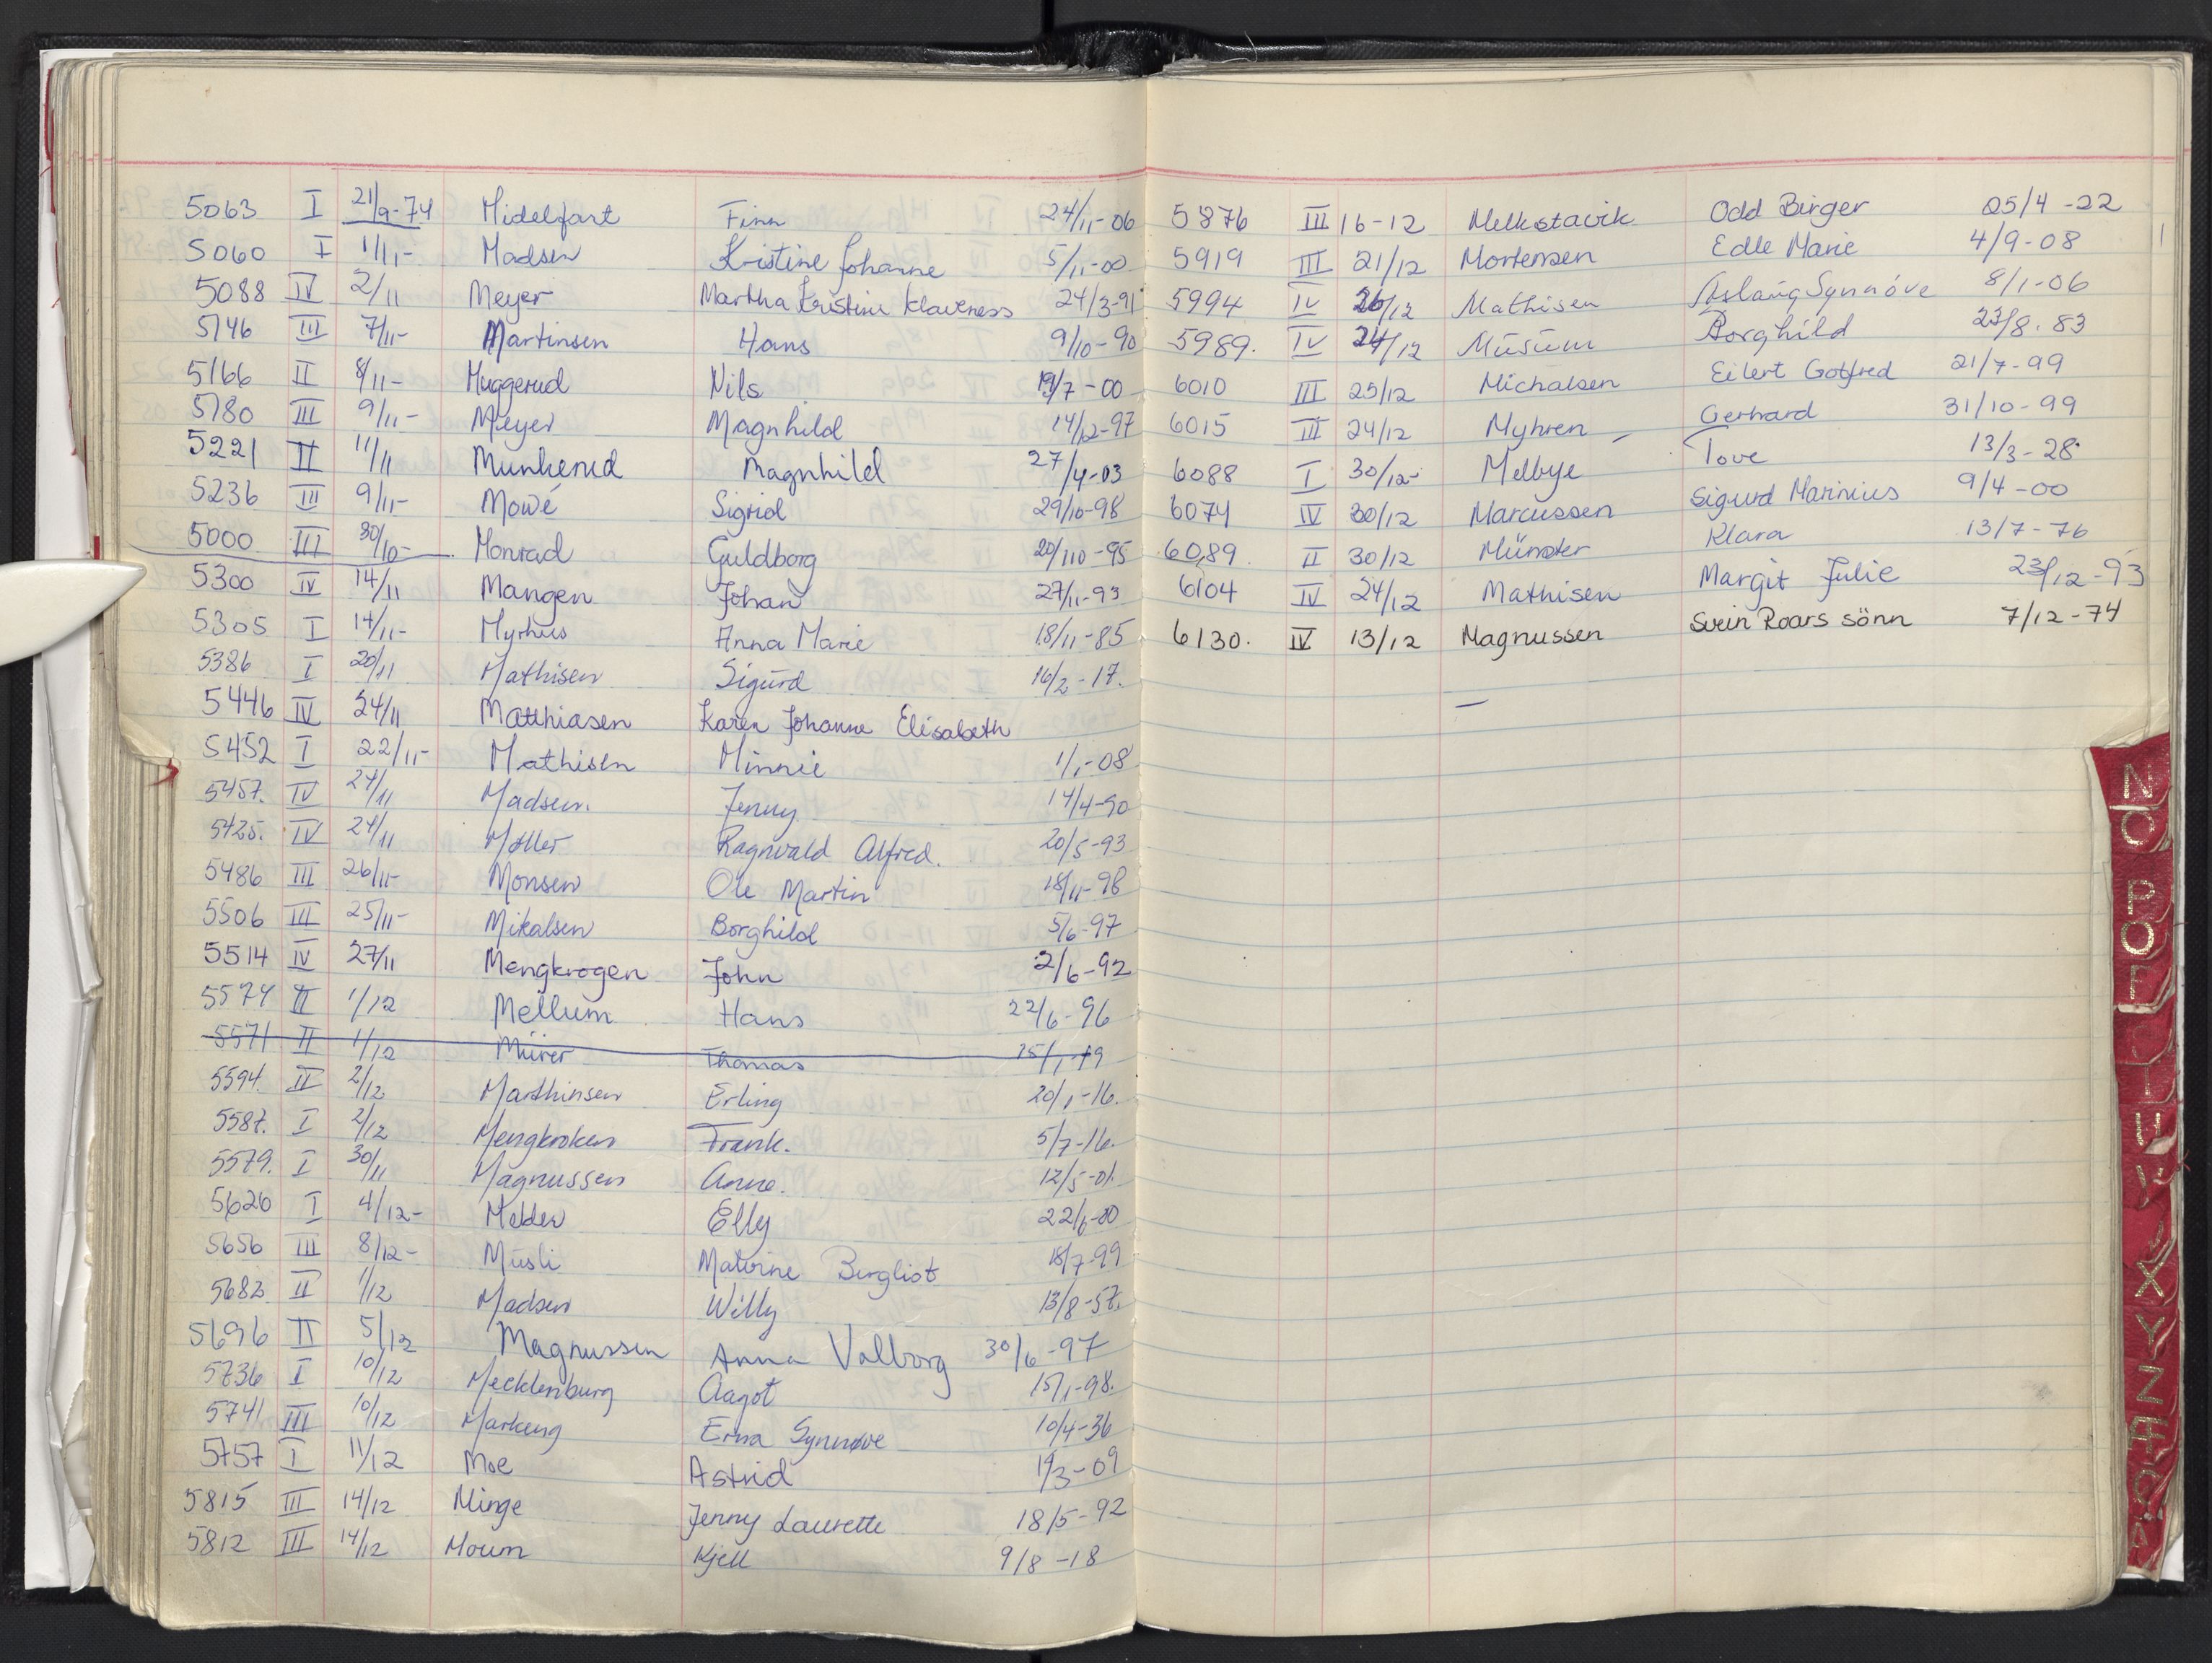 5063 I 21/9-74 Midelfart Finn 24/11-06
5060 I 1/11- Madsen Kristine Johanne 5/11-00
5088 IV 2/11 Meyer Martha Kristine Klaveness 24/3-91
5146 III 7/11- Martinsen Hans 9/10-90
5166 II 8/11- Muggerud Nils 19/7-00
5180 III 9/11- Meyer Magnhild 14/12-97
5221 II 11/11 Munkerud Magnhild 27/4-03
5236 III 9/11- Mowé Sigrid 29/10-98
5000 III 30/10- Monrad Guldborg 20/110-95
5300 IV 14/11 Mangen Johan 27/11-93
5305 I 14/11- Myrhus Anna Marie 18/11-85
5386 I 20/11 Mathisen Sigurd 16/2-17.
5446 IV 24/11 Matthiasen Karen Johanne Elisabeth
5452 I 22/11- Mathisen Minnie 1/1-08
5457. IV 24/11 Madsen. Jenny 14/4-90
5425. IV 24/11 Møller Ragnvald Alfred. 20/5-93
5486 III 26/11- Monsen Ole Martin 18/11-98
5506 III 25/11- Mikalsen Borghild 5/6-97
5514 IV 27/11 Mengkrogen John 2/6-92
5574 II 1/12 Mellum Hans 22/6-96
5571 II 1/12 Mürer Thomas
5594. IV 2/12 Marthinsen Erling 20/1-16.
5587. I 2/12 Mengkroken Frank. 5/7-16.
5579. I 30/11 Magnussen Anne. 12/5-01.
5620 I 4/12- Elly 22/6-00
5656 III 8/12- Musli Bergliot 18/7-99
5682 II 1/12 Madsen Willy 13/8-57.
5696 II 5/12 Magnussen Anna Valborg 30/6-97
5736 I 10/12 Mecklenburg Aagot 15/1-98.
5741 III 10/12 Markeng Erna Synnøve 10/4-36
5757 I 11/12 Moe Astrid 19/3-09
5815 III 14/12 Minge Jenny Laurette 18/5-92
5812 III 14/12 Moum Kjell 9/8-18
5876 III 16-12 Melkstavik Odd Birger 25/4-22
5919 III 21/12 Mortensen Edle Marie 4/9-08
5994 IV 26/12 Mathisen Aslaug Synnöve 8/1-06
5989. IV 24/12 Musum Borghild 23/8.83
6010 III 25/12 Michalsen Eilert Gotfred 21/7-99
6015 III 24/12 Myhren Gerhard 31/10-99
6088 I 30/12- Melbye Tove 13/3-28
6074 IV 30/12 Marcussen Sigurd Marinius 9/4-00
6089. II 30/12 Münster Klara 13/7-76
6104 IV 24/12 Mathisen Margit Julie 23/12-93
6130. IV 13/12 Magnussen Svein Roars sönn 7/12-74
N
O
P
Q
X
Y
Z